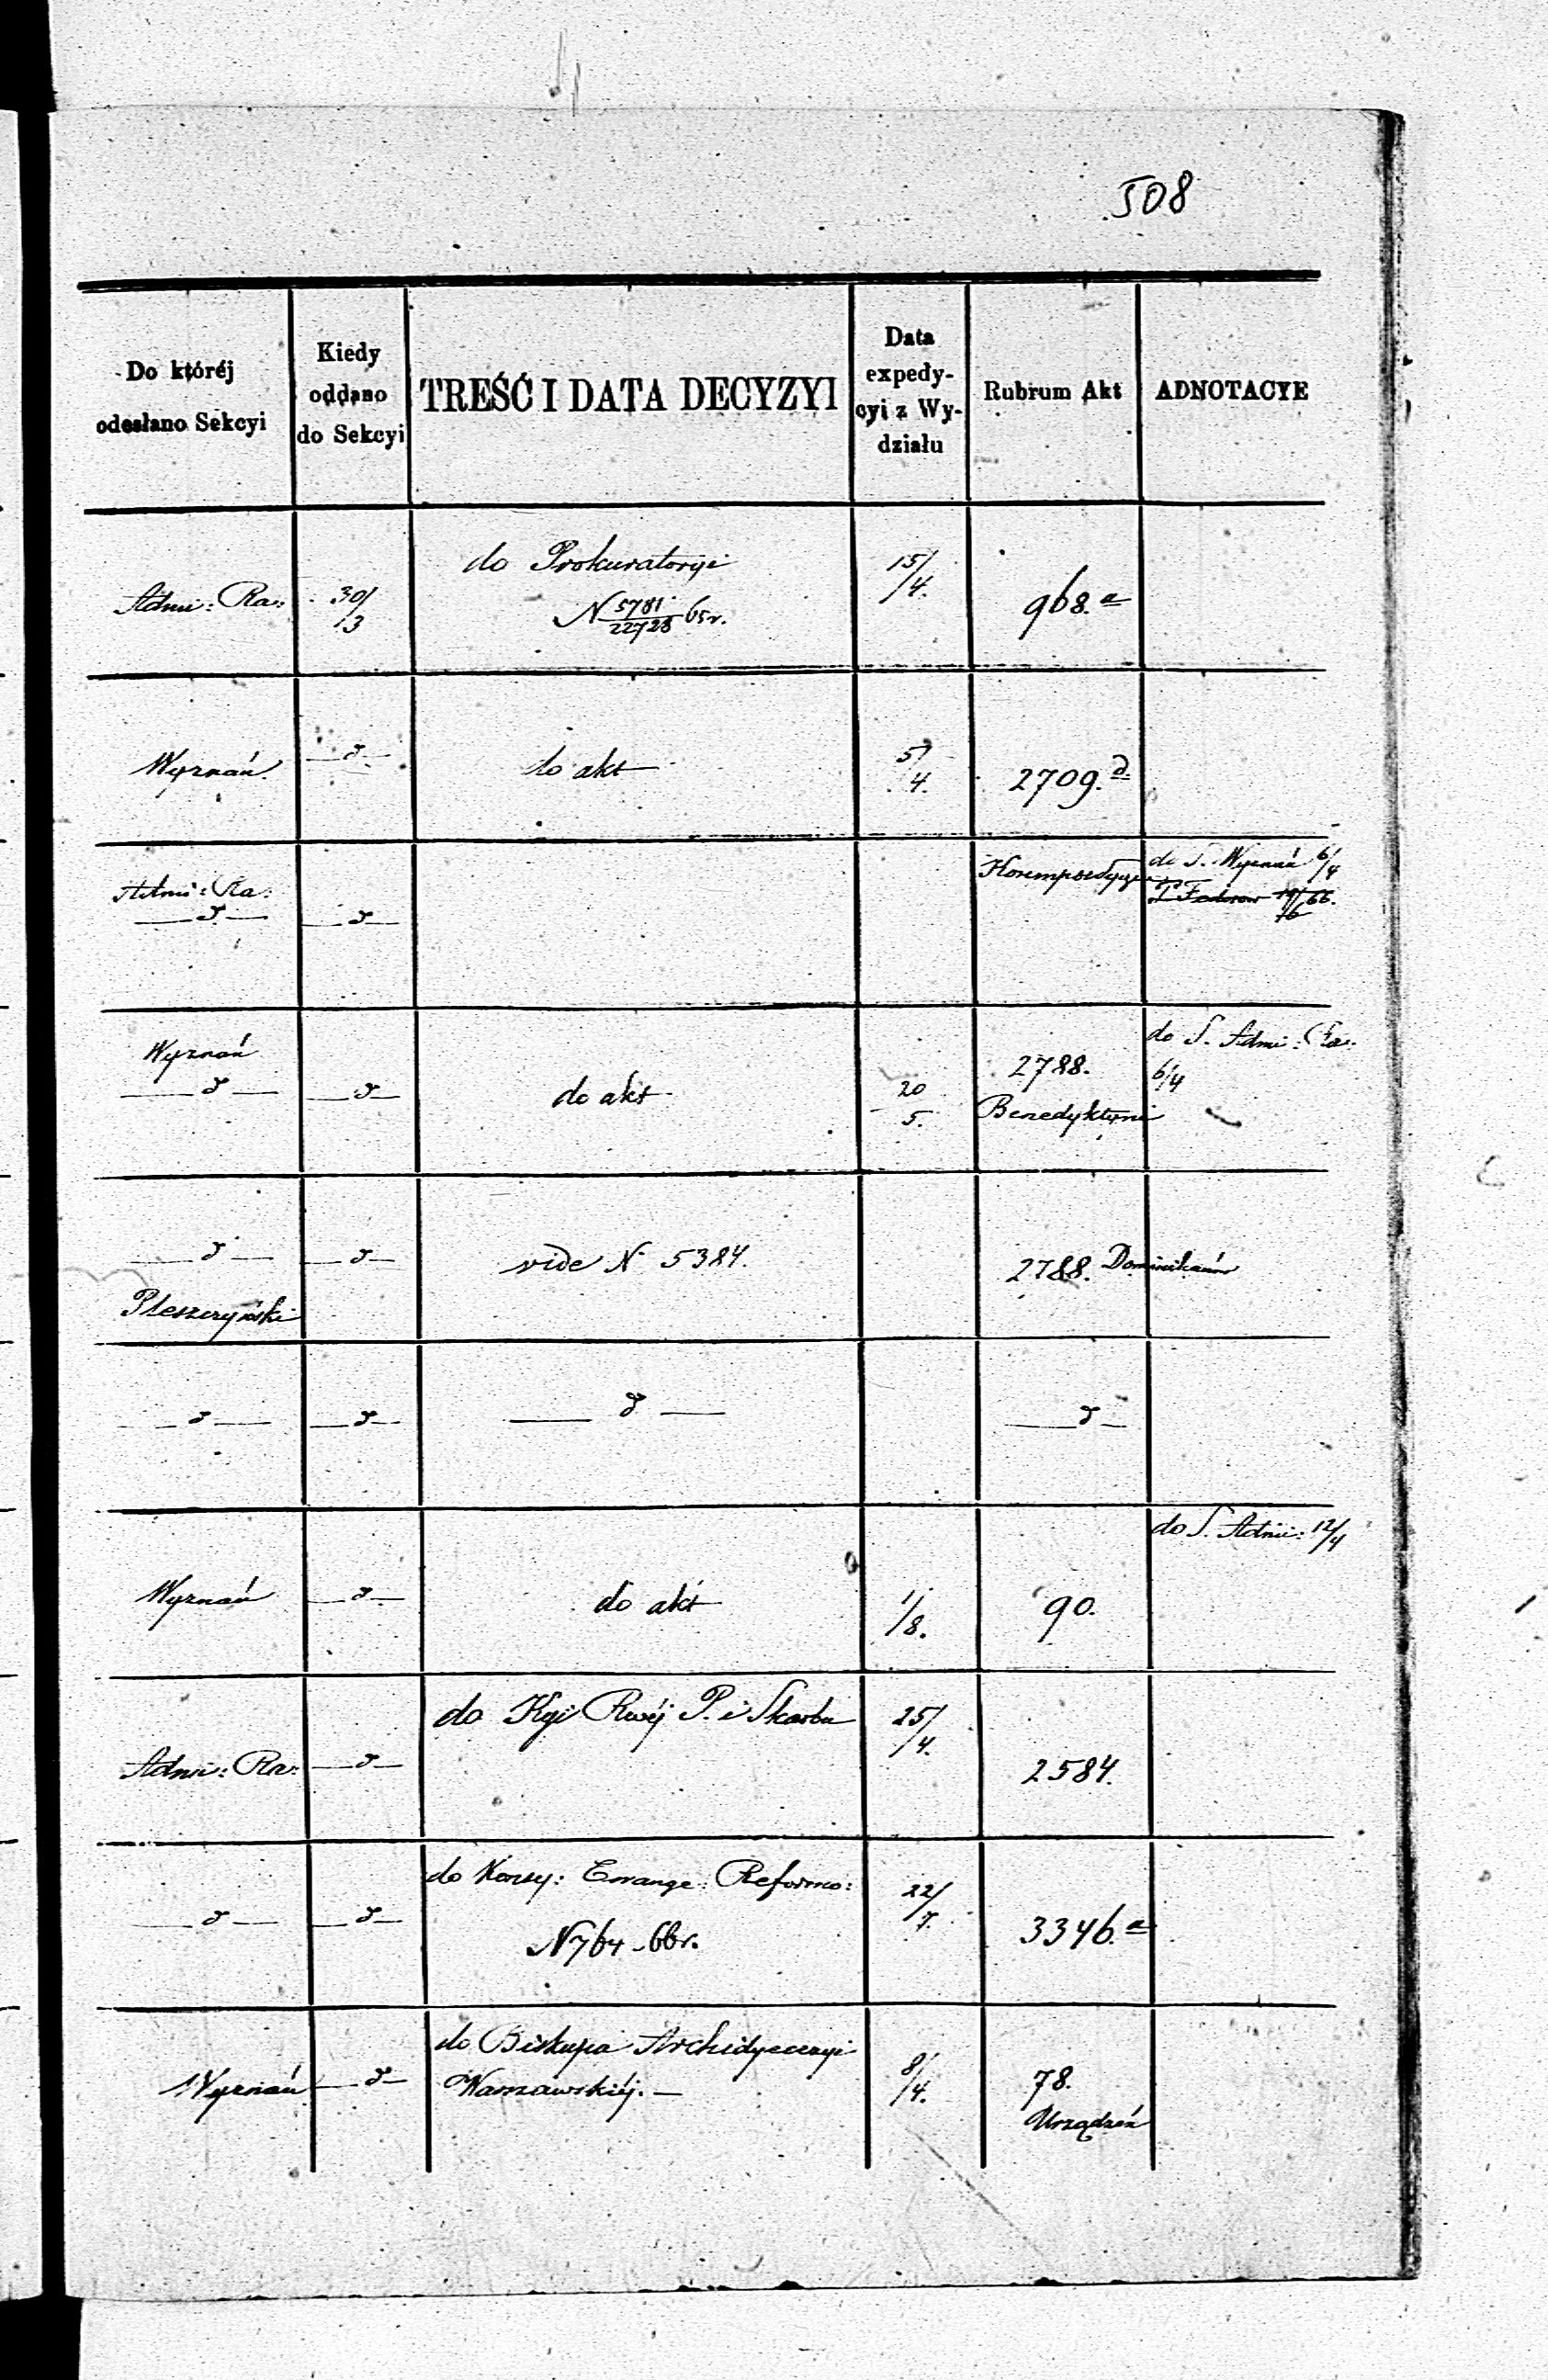 508
Do któréj odesłano Sekcyi | Kiedy oddano do Sekcyi | TREŚĆ I DATA DECYZYI | Data expedy-cyi z Wy-działu | Rubrum Akt | ADNOTACYE
Admi: Ra: | 30/3 | do Prokuratoryi | 15/4. | 968.a
N 5781/22728 65 r.
Wyznań | d | do akt | 5/4. | 2709.d
Admi: Ra: | do S. Wyznań 6/4
d | d
Wyznań | do S. Admi: Ra:
d | d | do akt | 20/5. | 2788. | 6/4
Benedyktyni
d | d | vide N 5384. | 2788. Dominikanów
Pleszczyński
d | d | d | d
do S. Admi: 12/4
Wyznań | d | do akt | 1/8. | 90.
Admi: Ra: | d | do Kyi Rwéj P. i Skarbu | 25/4. | 2584.
d | d | do Konsy: Ewange: Reformo: | 22/7. | 3346.a
N 764 _ 66 r.
Wyznań | d | do Biskupa Archidyecezyi | 8/4. | 78.
Warszawskiéj. — | Urządzeń